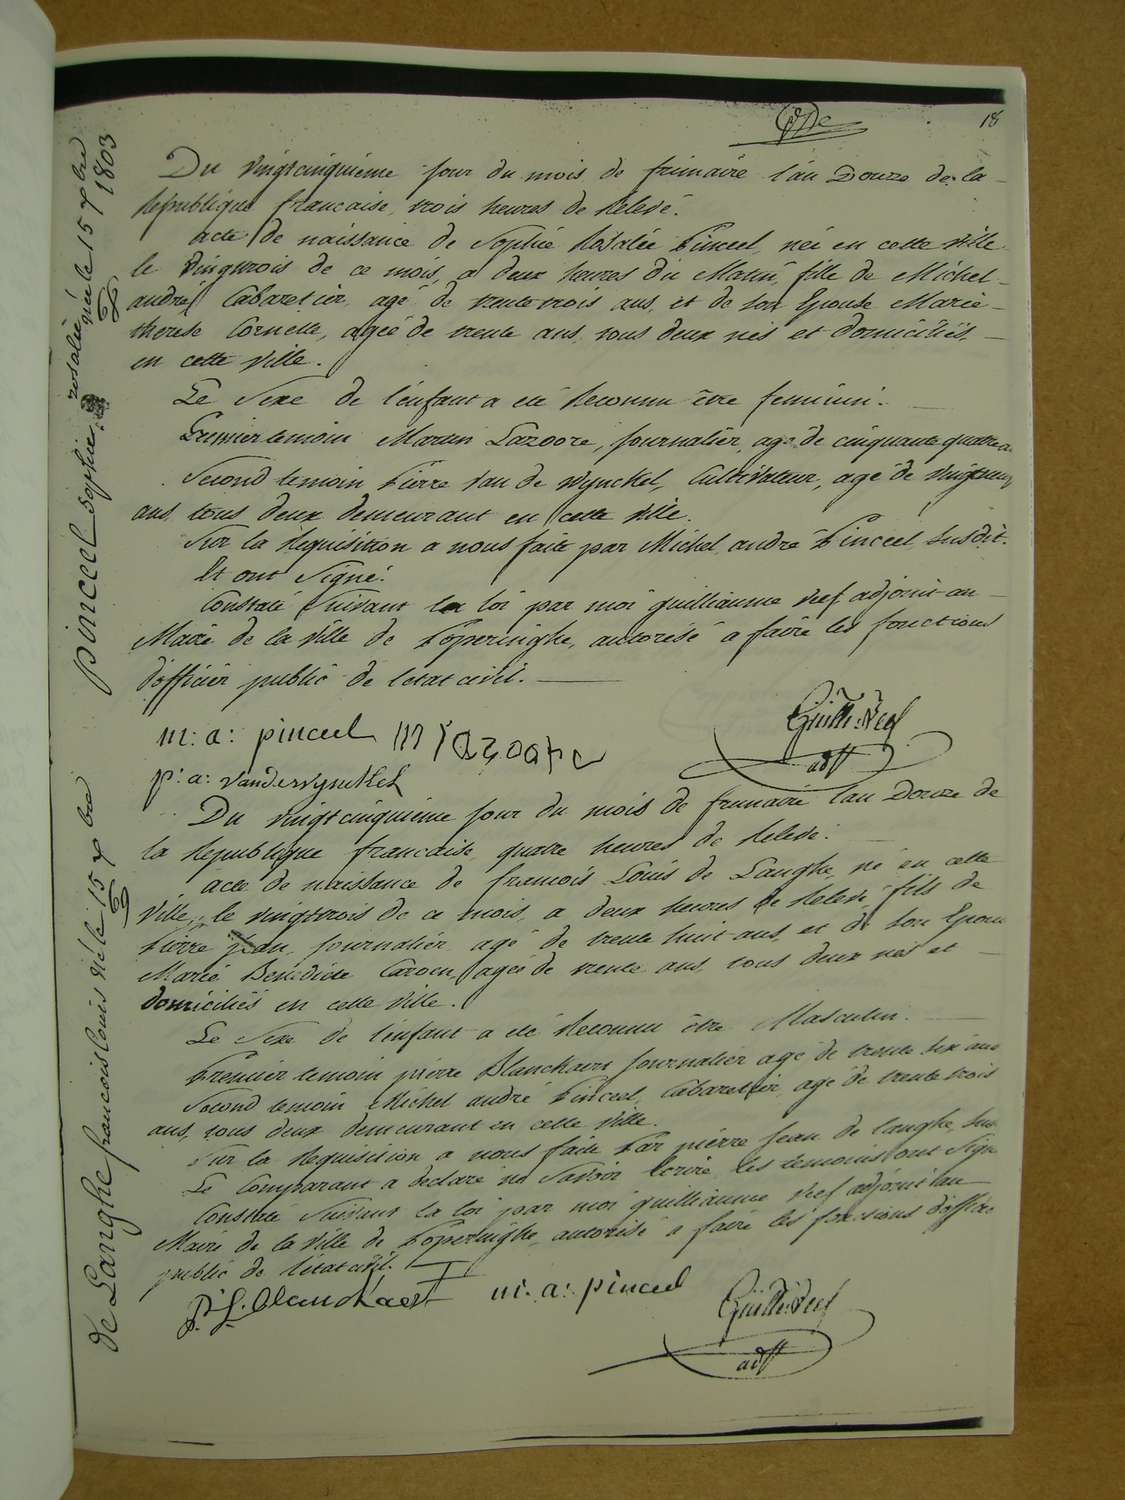 18
Du vingtcinquieme jour du mois de frimaire l'an Douze de la
Republique francaise, trois heures de Relevé.
acte de naissance de Sophie Rosalie Pinceel, née en cette Ville
le vingtrois de ce mois, a deux heures du Matin, fille de Michel
andré, Cabaretier, agé de trente trois ans, et de son Epouse Marie
therese Cornette, agée de trente ans, tous deux nés et domiciliés
en cette Ville.
Le Sexe de l'enfant a été Reconnu être feminin.
Premier temoin Martin Lazoore, journalier, agé de cinquante quatre
Second temoin Pierre van de Wynckel, Cultivateur, agé de
ans, tous deux demeurant en cette Ville.
Sur la Requisition a nous faite par Michel andré Pinceel susdit.
Et ont Signé.
Constaté Suivant la loi par moi guilliaume Neef adjoint au
Maire de la Ville de Poperinghe, autorisé a faire les fonctions
d'officier public de letat civil.
m: a: pinceel
p: a: vanderwynckel
Guille Neef
adjt
Du vingtcinquieme jour du mois de frimaire l'an Douze de
la Republique francaise, quatre heures de Relevé.
acte de naissance de francois Louis de Langhe, né en cette
Ville, le vingtrois de ce mois, a deux heures de Relevé, fils de
Pierre jean, journalier, agé de trente huit ans, et de son Epouse
Marie Benedicte Caroen, agée de trente ans, tous deux nés et
domiciliés en cette Ville.
Le Sexe de l'enfant a été Reconnu être Masculin.
Premier temoin pierre Blanckaert journalier agé de trente six ans
Second temoin Michel andré Pinceel, Cabaretier, agé de trente trois
ans, tous deux demeurant en cette Ville.
Sur la Requisition a nous faite Par pierre jean de langhe, sus
Le Comparant a declaré ne Savoir Ecrire, les temoins ont Signé
Constaté Suivant la loi par moi guilliaume Neef adjoint au
Maire de la Ville de Poperinghe, autorisé a faire les fonctions d'officier
public de l'état civil.
m: a: pinceel
Guille Neef
adjt
pinceel Sophie rosalie née le 15 xbre 1803
de Langhe francois louis né le 15 xbre